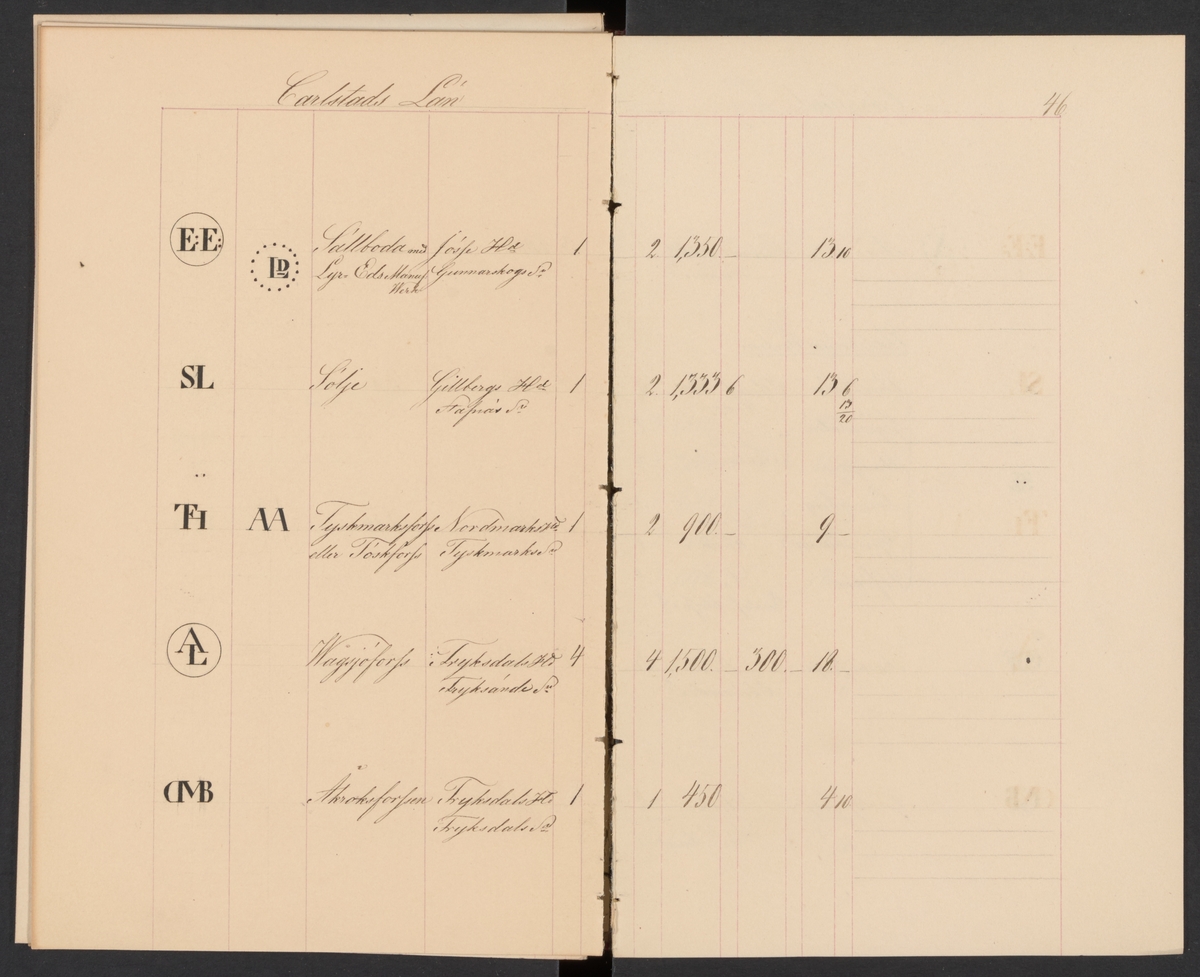 Carlstads Län
46
E:E: LD Sällboda med Jösse Hd 1 2 1,350. _ 13 10
Lyr= Eds Manuf Gunnarskogs Sn
Werk
SL Sölje Gillbergs Hd 1 2. 1,333 6 13 6
13/20
TH AA Tyskmarksforss Nordmarks Hd 1 2 900. _ 9 _
eller Töskforss Tyskmarks Sn
AL Wägsjöforss Fryksdals Hd 4 4 1,500. _ 300. _ 18. _
Fryksände Sn
CMB Åkroksforssen Fryksdals Hd 1 1 450 4 10
Fryksdals Sn